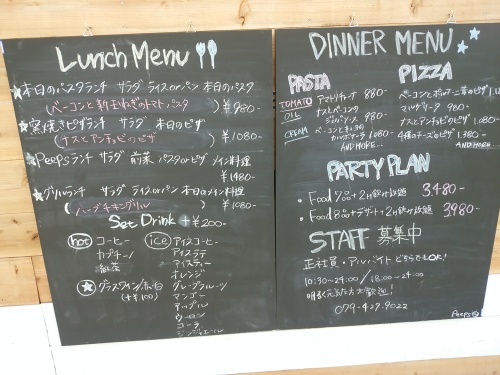 Lunch Menu
★本日のパスタランチ サラダ ライスorパン 本日のパスタ
(ベーコンと新玉ねぎのトマトパスタ) ¥980-
★窯焼きピザランチ サラダ 本日のピザ
(ナスとアンチョビのピザ) ¥1080-
★Peepsランチ サラダ 前菜 パスタorピザ メイン料理
¥1480-
★グリルランチ サラダ ライスorパン 本日のメイン料理
(ハーブチキングリル) ¥1080-
Set Drink +¥200-
hot コーヒー
カプチーノ
紅茶
★ グラスワイン/赤・白
(+¥100)
ice アイスコーヒー
アイスラテ
アイスティー
オレンジ
グレープフルーツ
マンゴー
アップル
ウーロン
コーラ
ジンジャエール
DINNER MENU
PASTA
TOMATO アマトリチャーナ 880-
OIL ナスとベーコンの
980-
CREAM ベーコンときのこの
カルボナーラ 1080-
AND MORE...
PIZZA
1,280-
マルゲリータ 980-
ナスとアンチョビのピザ 1,380-
4種のチーズのピザ 1,380-
AND MORE...
PARTY PLAN
• Food 7品 + 2h飲み放題 3480-
• Food 8品+デザート+2h飲み放題 3980-
STAFF 募集中
正社員・アルバイト どちらでもOK!
10:30~24:00 / 18:00~24:00
明るく元気な方大歓迎!
079-427-9022
Peeps